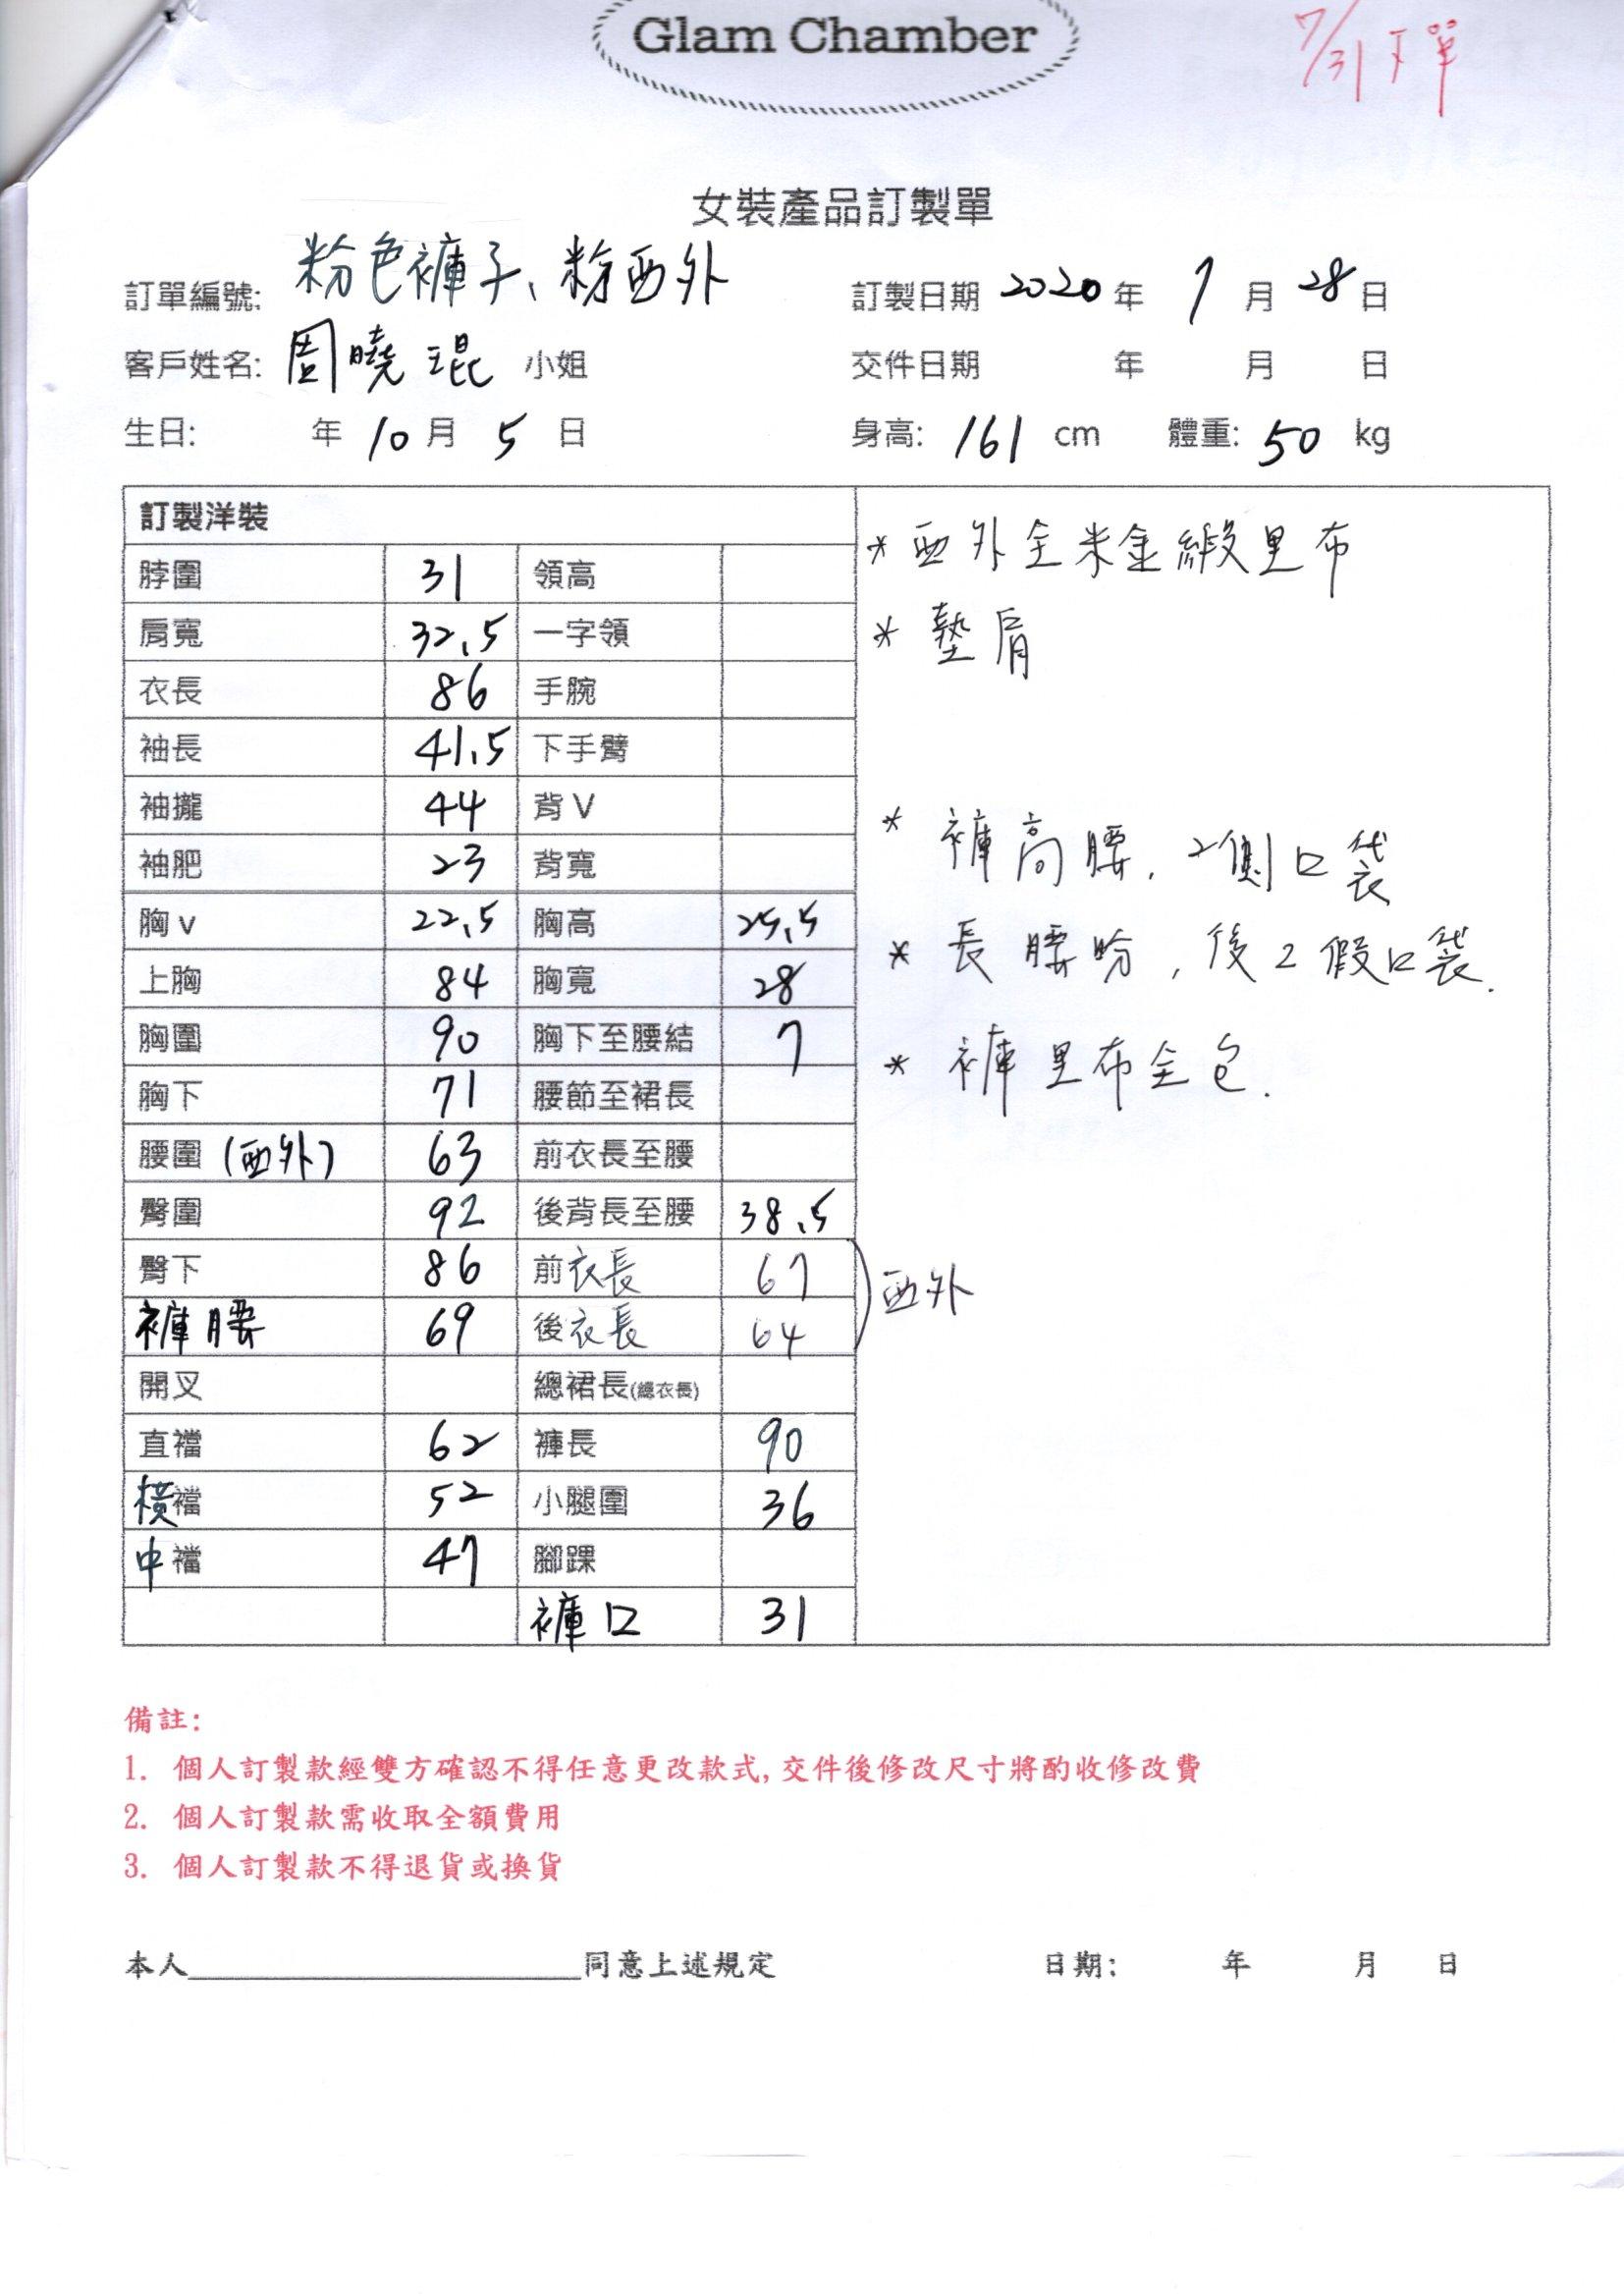 Glam Chamber
7/31下單
女裝產品訂製單
訂單編號: 粉色褲子、粉西外 訂製日期 2020 年 7 月 28 日
客戶姓名: 周曉琨 小姐 交件日期 年 月 日
生日: 年 10 月 5 日 身高: 161 cm 體重: 50 kg
訂製洋裝
脖圍 31 領高
肩寬 32.5 一字領
衣長 86 手腕
袖長 41.5 下手臂
袖攏 44 背V
袖肥 23 背寬
胸v 22.5 胸高 25.5
上胸 84 胸寬 28
胸圍 90 胸下至腰結 7
胸下 71 腰節至裙長
腰圍 (西外) 63 前衣長至腰
臀圍 92 後背長至腰 38.5
臀下 86 前衣長 67
褲腰 69 後衣長 64
西外
開叉 總裙長(總衣長)
直襠 62 褲長 90
橫襠 52 小腿圍 36
中襠 47 腳踝
褲口 31
* 西外全米金緞里布
* 墊肩
* 褲高腰, 2側口袋
* 長腰吩, 後2假口袋.
* 褲里布全包.
備註:
1. 個人訂製款經雙方確認不得任意更改款式, 交件後修改尺寸將酌收修改費
2. 個人訂製款需收取全額費用
3. 個人訂製款不得退貨或換貨
本人____________________同意上述規定 日期: 年 月 日